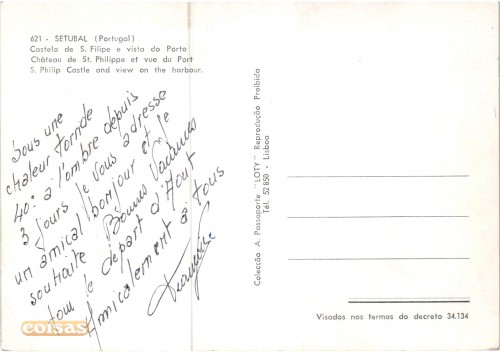 621 - SETUBAL (Portugal)
Castelo de S. Filipe e vista do Porto
Château de St. Philippe et vue du Port
S. Philip Castle and view on the harbour.
Sous une
chaleur torride
40° à l'ombre depuis
3 jours je vous adresse
un amical bonjour et le
souhaite Bonnes Vacances
pour le départ d'Août
Amicalement à tous
Colecção A. Passaporte "LOTY" Reprodução Proibida
Tél. 52850 - Lisboa
Visados nos termos do decreto 34.134
coisas